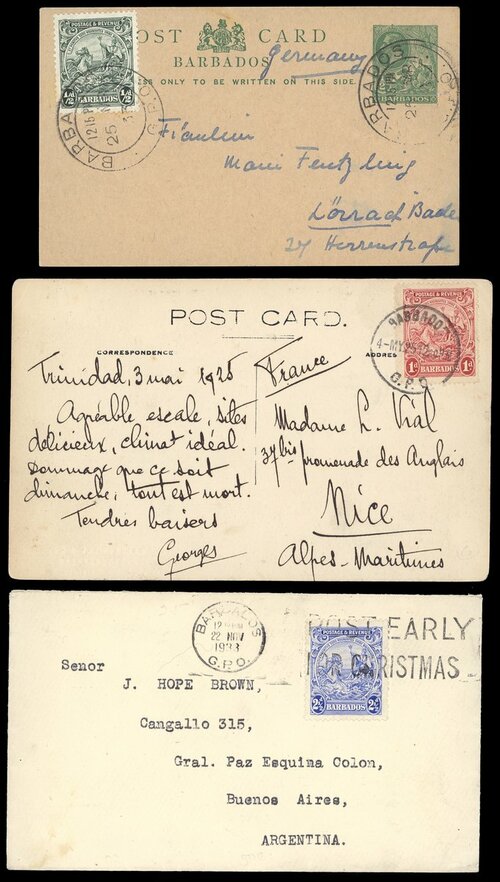 POST CARD
BARBADOS
Germany
POSTAGE & REVENUE
½d ½d
BARBADOS
BARBADOS
G.P.O.
25
BARBADOS
25
Fräulein
Lörrach Baden
27 Herrenstraße
POST CARD.
CORRESPONDENCE
ADDRES
POSTAGE & REVENUE
BARBADOS
1d 1d
BARBADO
4-MY
G.P.O
Trinidad, 3 mai 1925
Agréable escale, sites
délicieux, climat idéal.
Dommage que ce soit
dimanche, tout est mort.
Tendres baisers
Georges
France
Madame L. Vial
37 bis promenade des Anglais
Nice
Alpes-Maritimes
BARBADOS
22 NOV
1933
G.P.O.
POST EARLY
FOR CHRISTMAS
POSTAGE & REVENUE
BARBADOS
2½d
Senor
J. HOPE BROWN,
Cangallo 315,
Gral. Paz Esquina Colon,
Buenos Aires,
ARGENTINA.